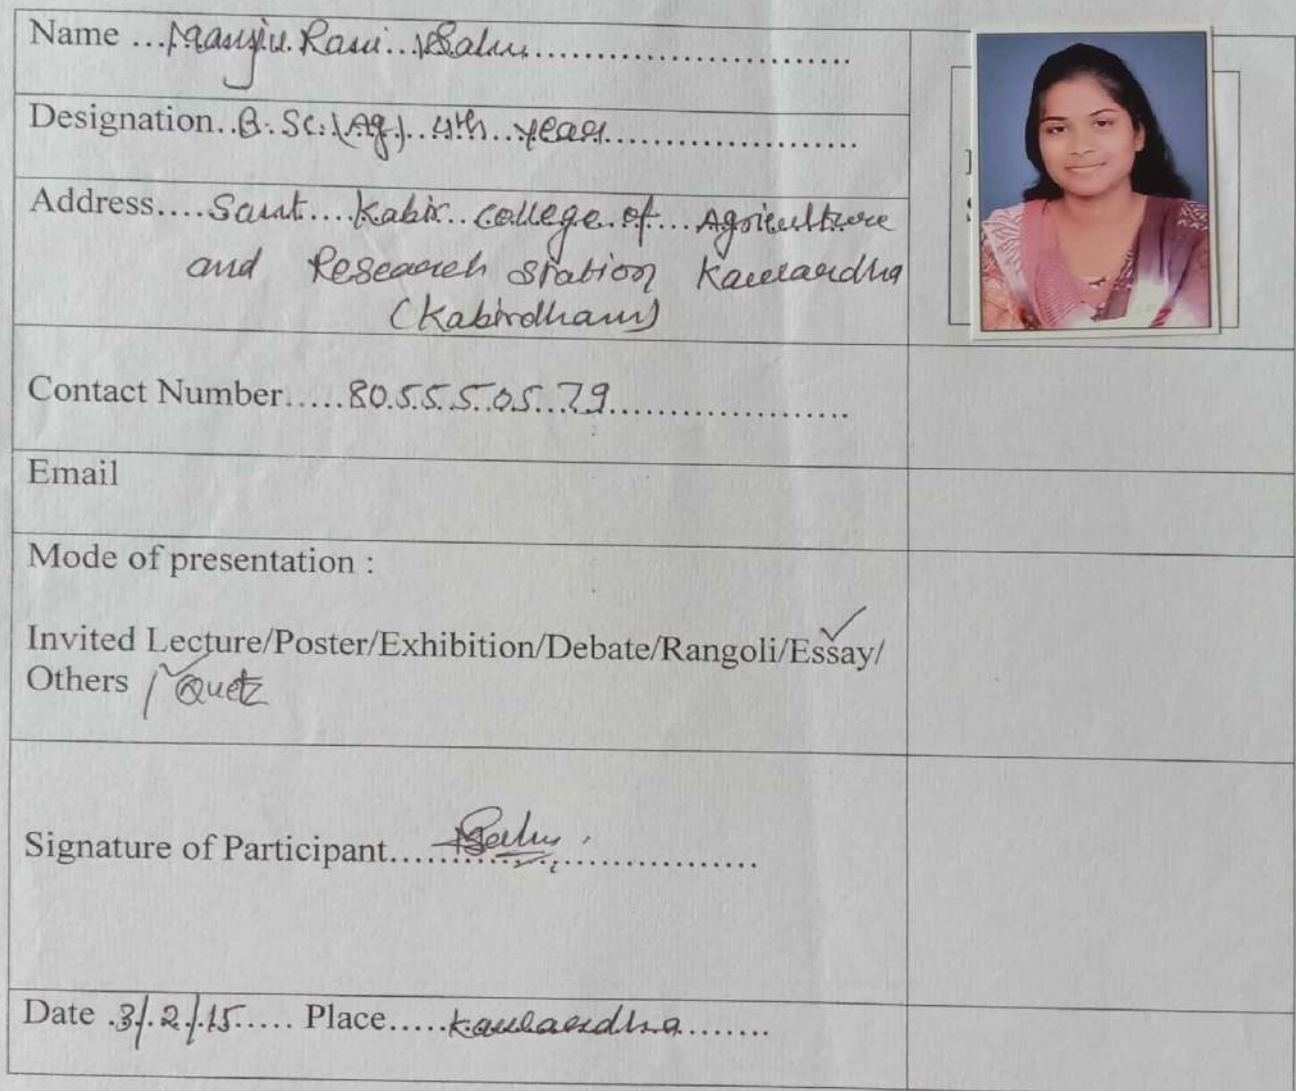 Name ...Manju Rani Sahu..............................
Designation..B.Sc.(Ag.)..4th..year.......................
Address....Sant....Kabir..College.of....Agriculture
and Research Station Kawardha
(Kabirdham)
Contact Number.....80.5.5.5.05..79......................
Email
Mode of presentation :
Invited Lecture/Poster/Exhibition/Debate/Rangoli/Essay/
Others / Quiz
Signature of Participant.....Sahu......................
Date .3/.2./.15..... Place.....Kawardha........